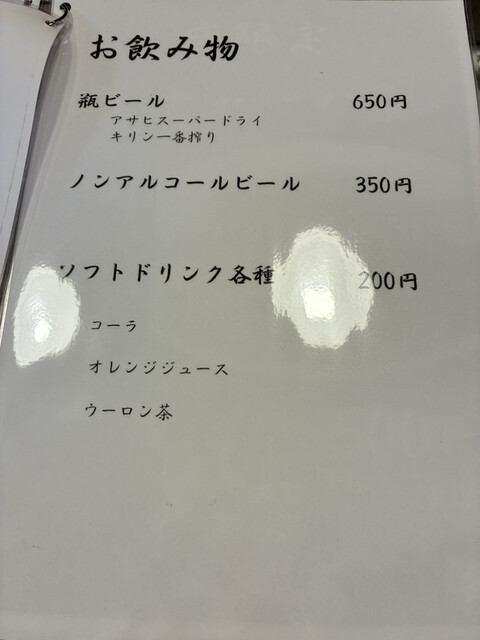 お飲み物
瓶ビール 650円
アサヒスーパードライ
キリン一番搾り
ノンアルコールビール 350円
ソフトドリンク各種 200円
コーラ
オレンジジュース
ウーロン茶